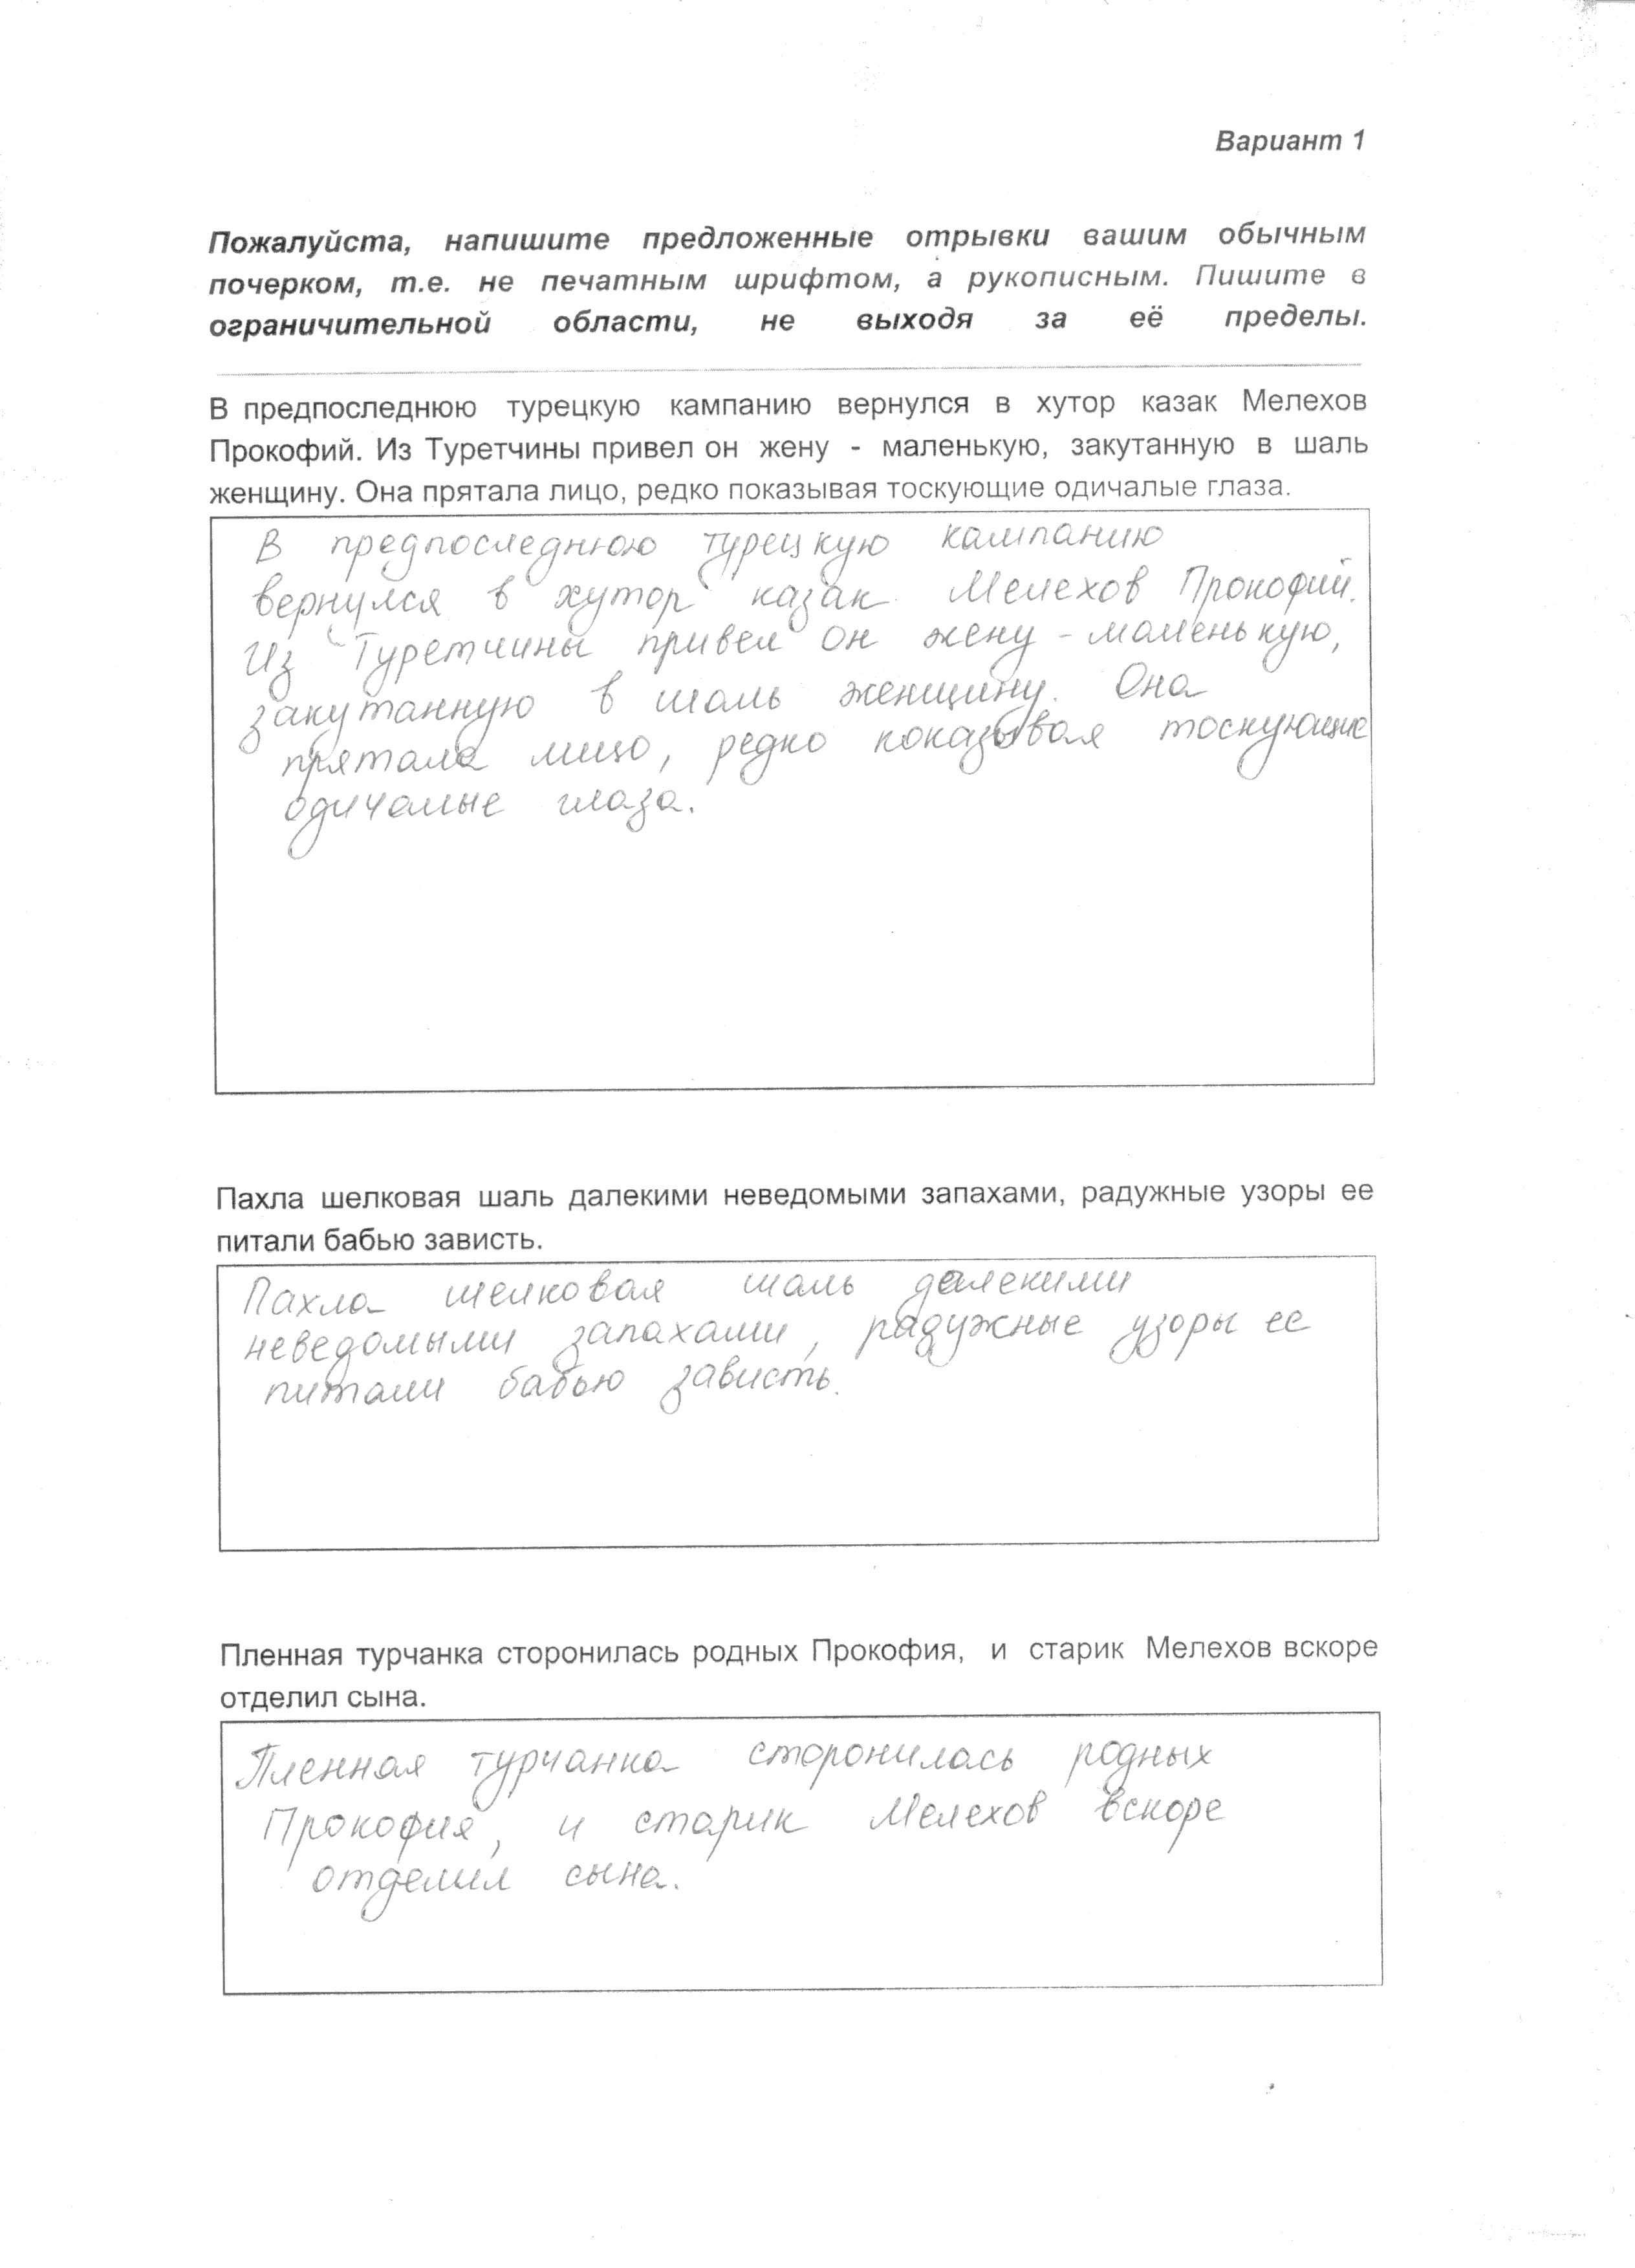 Вариант 1
Пожалуйста, напишите предложенные отрывки вашим обычным
почерком, т.е. не печатным шрифтом, а рукописным. Пишите в
ограничительной области, не выходя за её пределы.
В предпоследнюю турецкую кампанию вернулся в хутор казак Мелехов
Прокофий. Из Туретчины привел он жену - маленькую, закутанную в шаль
женщину. Она прятала лицо, редко показывая тоскующие одичалые глаза.
В предпоследнюю турецкую кампанию
вернулся в хутор казак Мелехов Прокофий.
Из Туретчины привел он жену - маленькую,
закутанную в шаль женщину. Она
прятала лицо, редко показывая тоскующие
одичалые глаза.
Пахла шелковая шаль далекими неведомыми запахами, радужные узоры ее
питали бабью зависть.
Пахла шелковая шаль далекими
неведомыми запахами, радужные узоры ее
питали бабью зависть.
Пленная турчанка сторонилась родных Прокофия, и старик Мелехов вскоре
отделил сына.
Пленная турчанка сторонилась родных
Прокофия, и старик Мелехов вскоре
отделил сына.